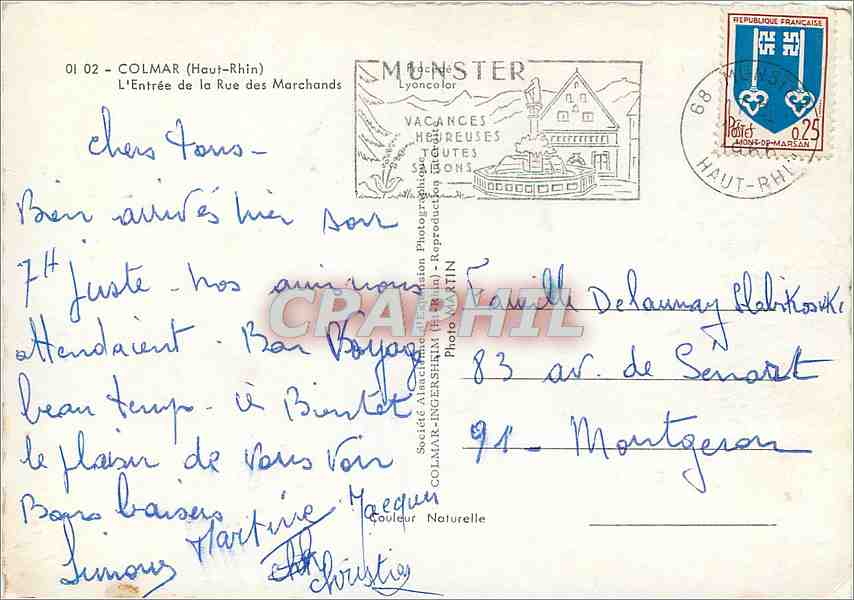 01 02 - COLMAR (Haut-Rhin)
L'Entrée de la Rue des Marchands
Procédé
Lyoncolor
MUNSTER
VACANCES
HEUREUSES
TOUTES
SAISONS
68 MUNSTER
HAUT-RHIN
REPUBLIQUE FRANÇAISE
Postes
0,25
MONT-DE-MARSAN
chers tous -
Bien arrivés hier soir
7H juste - nos amis nous
attendaient - Bon Voyage
beau temps - à Bientôt
le plaisir de vous voir
Bons baisers
Martine Jacques
Simone
Christian
Société Alsacienne d'Expansion Photographique
COLMAR-INGERSHEIM (Ht-Rhin) - Reproduction interdite
Photo MARTIN
CPAPHIL
Famille Delaunay Slabikosuki
83 av. de Sénart
91 - Montgeron
Couleur Naturelle